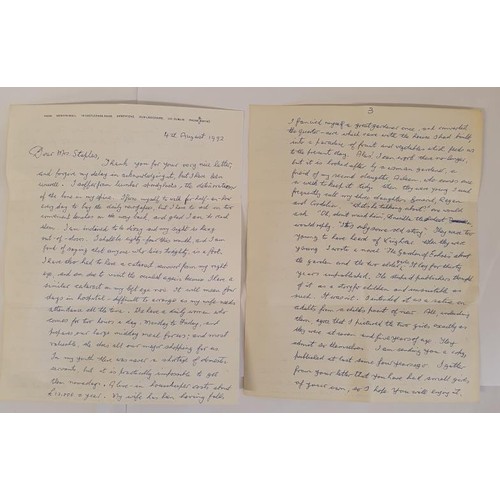 4th August 1992
Dear Mrs Staples,
Thank you for your very nice letter,
and forgive my delay in acknowledging it, but I have been
unwell. I suffer from lumbar spondylosis, the deterioration
of the bone in my spine. I force myself to walk for half-an-hour
every day to buy the daily newspaper, but I have to rest on two
convenient benches on the way back, and glad I am to reach
them. I am inclined to be lazy and my legs keep
out-of-doors. I shall be eighty-four this month, and I am
fond of saying that anyone who lives to eighty, is a fool.
I have also had to have a cataract removed from my right
eye, and am due to visit the hospital again because I have a
similar cataract in my left eye now. It will mean four
days in hospital - difficult to arrange as my wife needs
attendance all the time. She has a daily woman who
comes for two hours a day, Monday to Friday, and
prepares our large midday meal for us; and most
valuable, she does all our major shopping for us.
In my youth there was never a shortage of domestic
servants but it is practically impossible to get
them nowadays. A live-in housekeeper costs about
£12,000 a year. My wife has been having falls
3
I fancied myself a great gardener once, and converted
the quarter-acre which came with the house I had built
into a paradise of fruit and vegetables which feeds us
to the present day. Alas! I can work there no longer,
but it is looked after by a woman gardener, a
friend of my second daughter Eileen, who comes once
a week to keep it tidy. When they were young I used
frequently call my three daughters Goneril, Regan
and Cordelia. "What's he talking about?" one would
ask. "Oh, don't mind him," Goneril the eldest
would reply. "It's only some old story." They were too
young to have heard of King Lear. When they were
young I wrote a novel The Garden of Eden about
the garden and the two girls. It lay for thirty
years unpublished. The dishes of publishers thought
of it as a story for children and unsuitable as
such. It was not. I intended it as a satire on
adults from a child's point of view. All, including
them, agree that I pictured the two girls exactly as
they were at seven and five years of age. They
admit so themselves. I am sending you a copy,
published at last some four years ago. I gather
from your letter that you have had small girls
of your own, so I hope you will enjoy it.